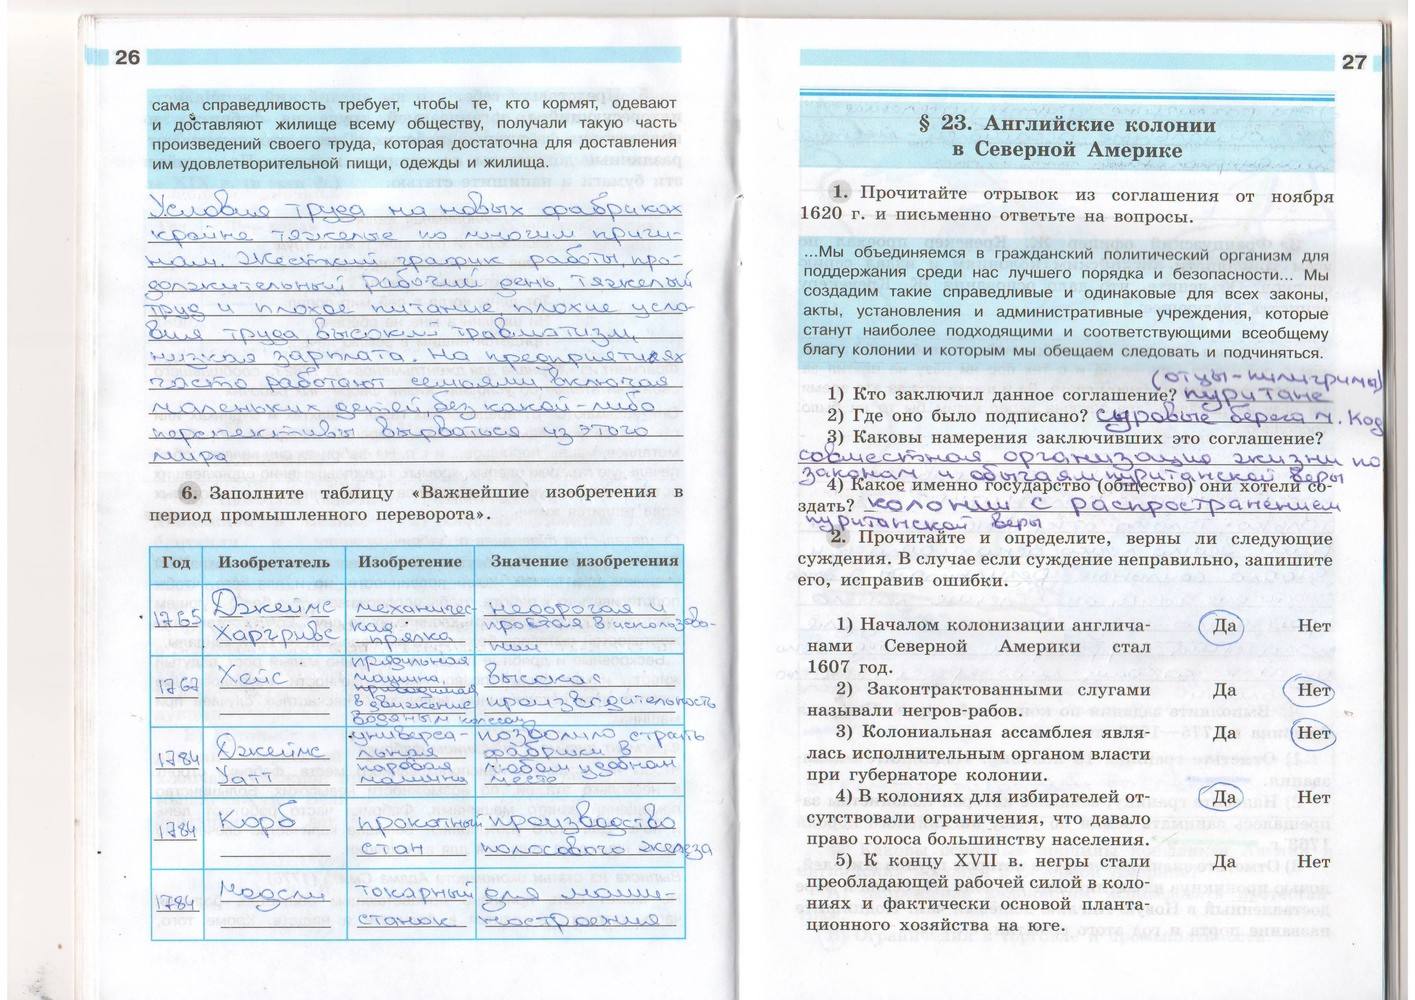 26
сама справедливость требует, чтобы те, кто кормят, одевают
и доставляют жилище всему обществу, получали такую часть
произведений своего труда, которая достаточна для доставления
им удовлетворительной пищи, одежды и жилища.
Условия труда на новых фабриках
крайне тяжелые по многим причи-
нам. Жесткий график работы, про-
должительный рабочий день, тяжелый
труд и плохое питание, плохие усло-
вия труда, высокий травматизм,
низкая зарплата. На предприятиях
часто работают семьями, включая
маленьких детей, без какой-либо
перспективы вырваться из этого
мира
6. Заполните таблицу «Важнейшие изобретения в
период промышленного переворота».
Год Изобретатель Изобретение Значение изобретения
1765 Джеймс Харгривс механичес-
кая
прялка
недорогая и
простая в использова-
нии
1767 Хейс прядильная
машина
приводимая
в движение
водяным колесом
высокая
производительность
1784 Джеймс
Уатт
универса-
льная
паровая
машина
позволило строить
фабрики в
любом удобном
месте
1784 Корб прокатный
стан
производство
полосового железа
1784 Модсли токарный
станок
для маши-
ностроения
27
§ 23. Английские колонии
в Северной Америке
1. Прочитайте отрывок из соглашения от ноября
1620 г. и письменно ответьте на вопросы.
...Мы объединяемся в гражданский политический организм для
поддержания среди нас лучшего порядка и безопасности... Мы
создадим такие справедливые и одинаковые для всех законы,
акты, установления и административные учреждения, которые
станут наиболее подходящими и соответствующими всеобщему
благу колонии и которым мы обещаем следовать и подчиняться.
(отцы-пилигримы)
1) Кто заключил данное соглашение? пуритане
2) Где оно было подписано? суровые берега м. Код
3) Каковы намерения заключивших это соглашение?
совместная организацию жизни по
законам и обычаям пуританской веры
4) Какое именно государство (общество) они хотели со-
здать? колонии с распространением
пуританской веры
2. Прочитайте и определите, верны ли следующие
суждения. В случае если суждение неправильно, запишите
его, исправив ошибки.
1) Началом колонизации англича- Да Нет
нами Северной Америки стал
1607 год.
2) Законтрактованными слугами Да Нет
называли негров-рабов.
3) Колониальная ассамблея явля- Да Нет
лась исполнительным органом власти
при губернаторе колонии.
4) В колониях для избирателей от- Да Нет
сутствовали ограничения, что давало
право голоса большинству населения.
5) К концу XVII в. негры стали Да Нет
преобладающей рабочей силой в коло-
ниях и фактически основой планта-
ционного хозяйства на юге.